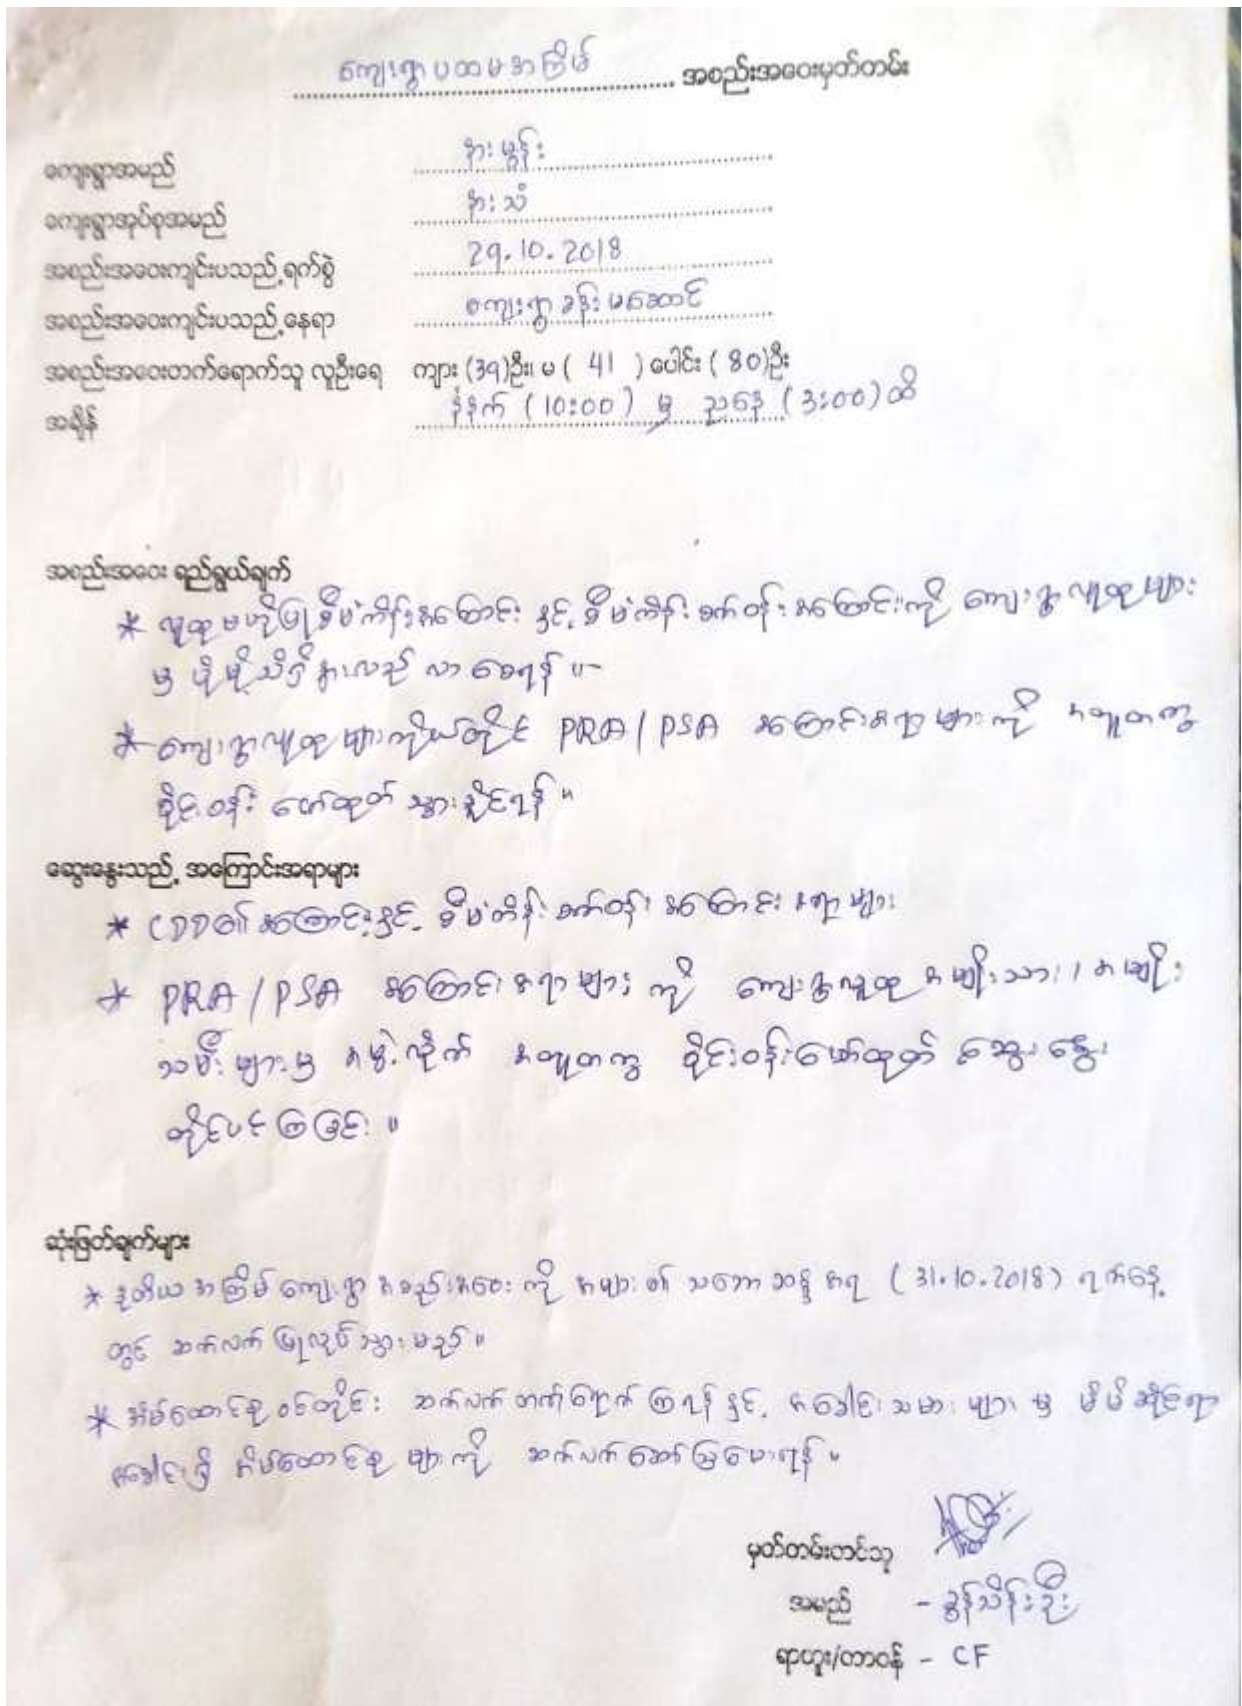 ကျေးရွာပထမအကြိမ် အစည်းအဝေးမှတ်တမ်း
ကျေးရွာအမည် နားမွန်း
ကျေးရွာအုပ်စုအမည် နားသံ
အစည်းအဝေးကျင်းပသည့်ရက်စွဲ 29.10.2018
အစည်းအဝေးကျင်းပသည့်နေရာ ကျေးရွာခန်းမဆောင်
အစည်းအဝေးတက်ရောက်သူ လူဦးရေ ကျား (39)ဦး၊ မ ( 41 ) ပေါင်း ( 80)ဦး
အချိန် နံနက် (10:00) မှ ညနေ (3:00) ထိ
အစည်းအဝေး ရည်ရွယ်ချက်
* လူထုဗဟိုပြုစီမံကိန်းအကြောင်း နှင့် စီမံကိန်းစက်ဝန်းအကြောင်းကို ကျေးရွာလူထုများ
မှ ပိုမိုသိရှိနားလည် လာစေရန် ။
* ကျေးရွာလူထုများကိုယ်တိုင် PRA / PSA အကြောင်းအရာများကို အတူတကွ
ဝိုင်းဝန်း ဖော်ထုတ် သွားနိုင်ရန် ။
ဆွေးနွေးသည့် အကြောင်းအရာများ
* CDD ၏ အကြောင်းနှင့် စီမံကိန်း စက်ဝန်း အကြောင်းအရာများ
* PRA / PSA အကြောင်းအရာများ ကို ကျေးရွာလူထု အမျိုးသား / အမျိုး
သမီးများမှ အဖွဲ့လိုက် အတူတကွ ဝိုင်းဝန်းဖော်ထုတ် ဆွေးနွေး
တိုင်ပင်ကြခြင်း ။
ဆုံးဖြတ်ချက်များ
* ဒုတိယအကြိမ် ကျေးရွာ အစည်းအဝေး ကို အများ၏ သဘောဆန္ဒအရ (31.10.2018) ရက်နေ့
တွင် ဆက်လက် ပြုလုပ်သွားမည် ။
* အိမ်ထောင်စုဝင်တိုင်း ဆက်လက် တက်ရောက်ကြရန် နှင့် အခေါင်းသမားများ မှ မိမိဆိုင်ရာ
အခေါင်းရှိ အိမ်ထောင်စုများကို ဆက်လက် ဆော်ဩပေးရန် ။
မှတ်တမ်းတင်သူ
အမည် - ခွန်သိန်းဦး
ရာထူး/တာဝန် - CF